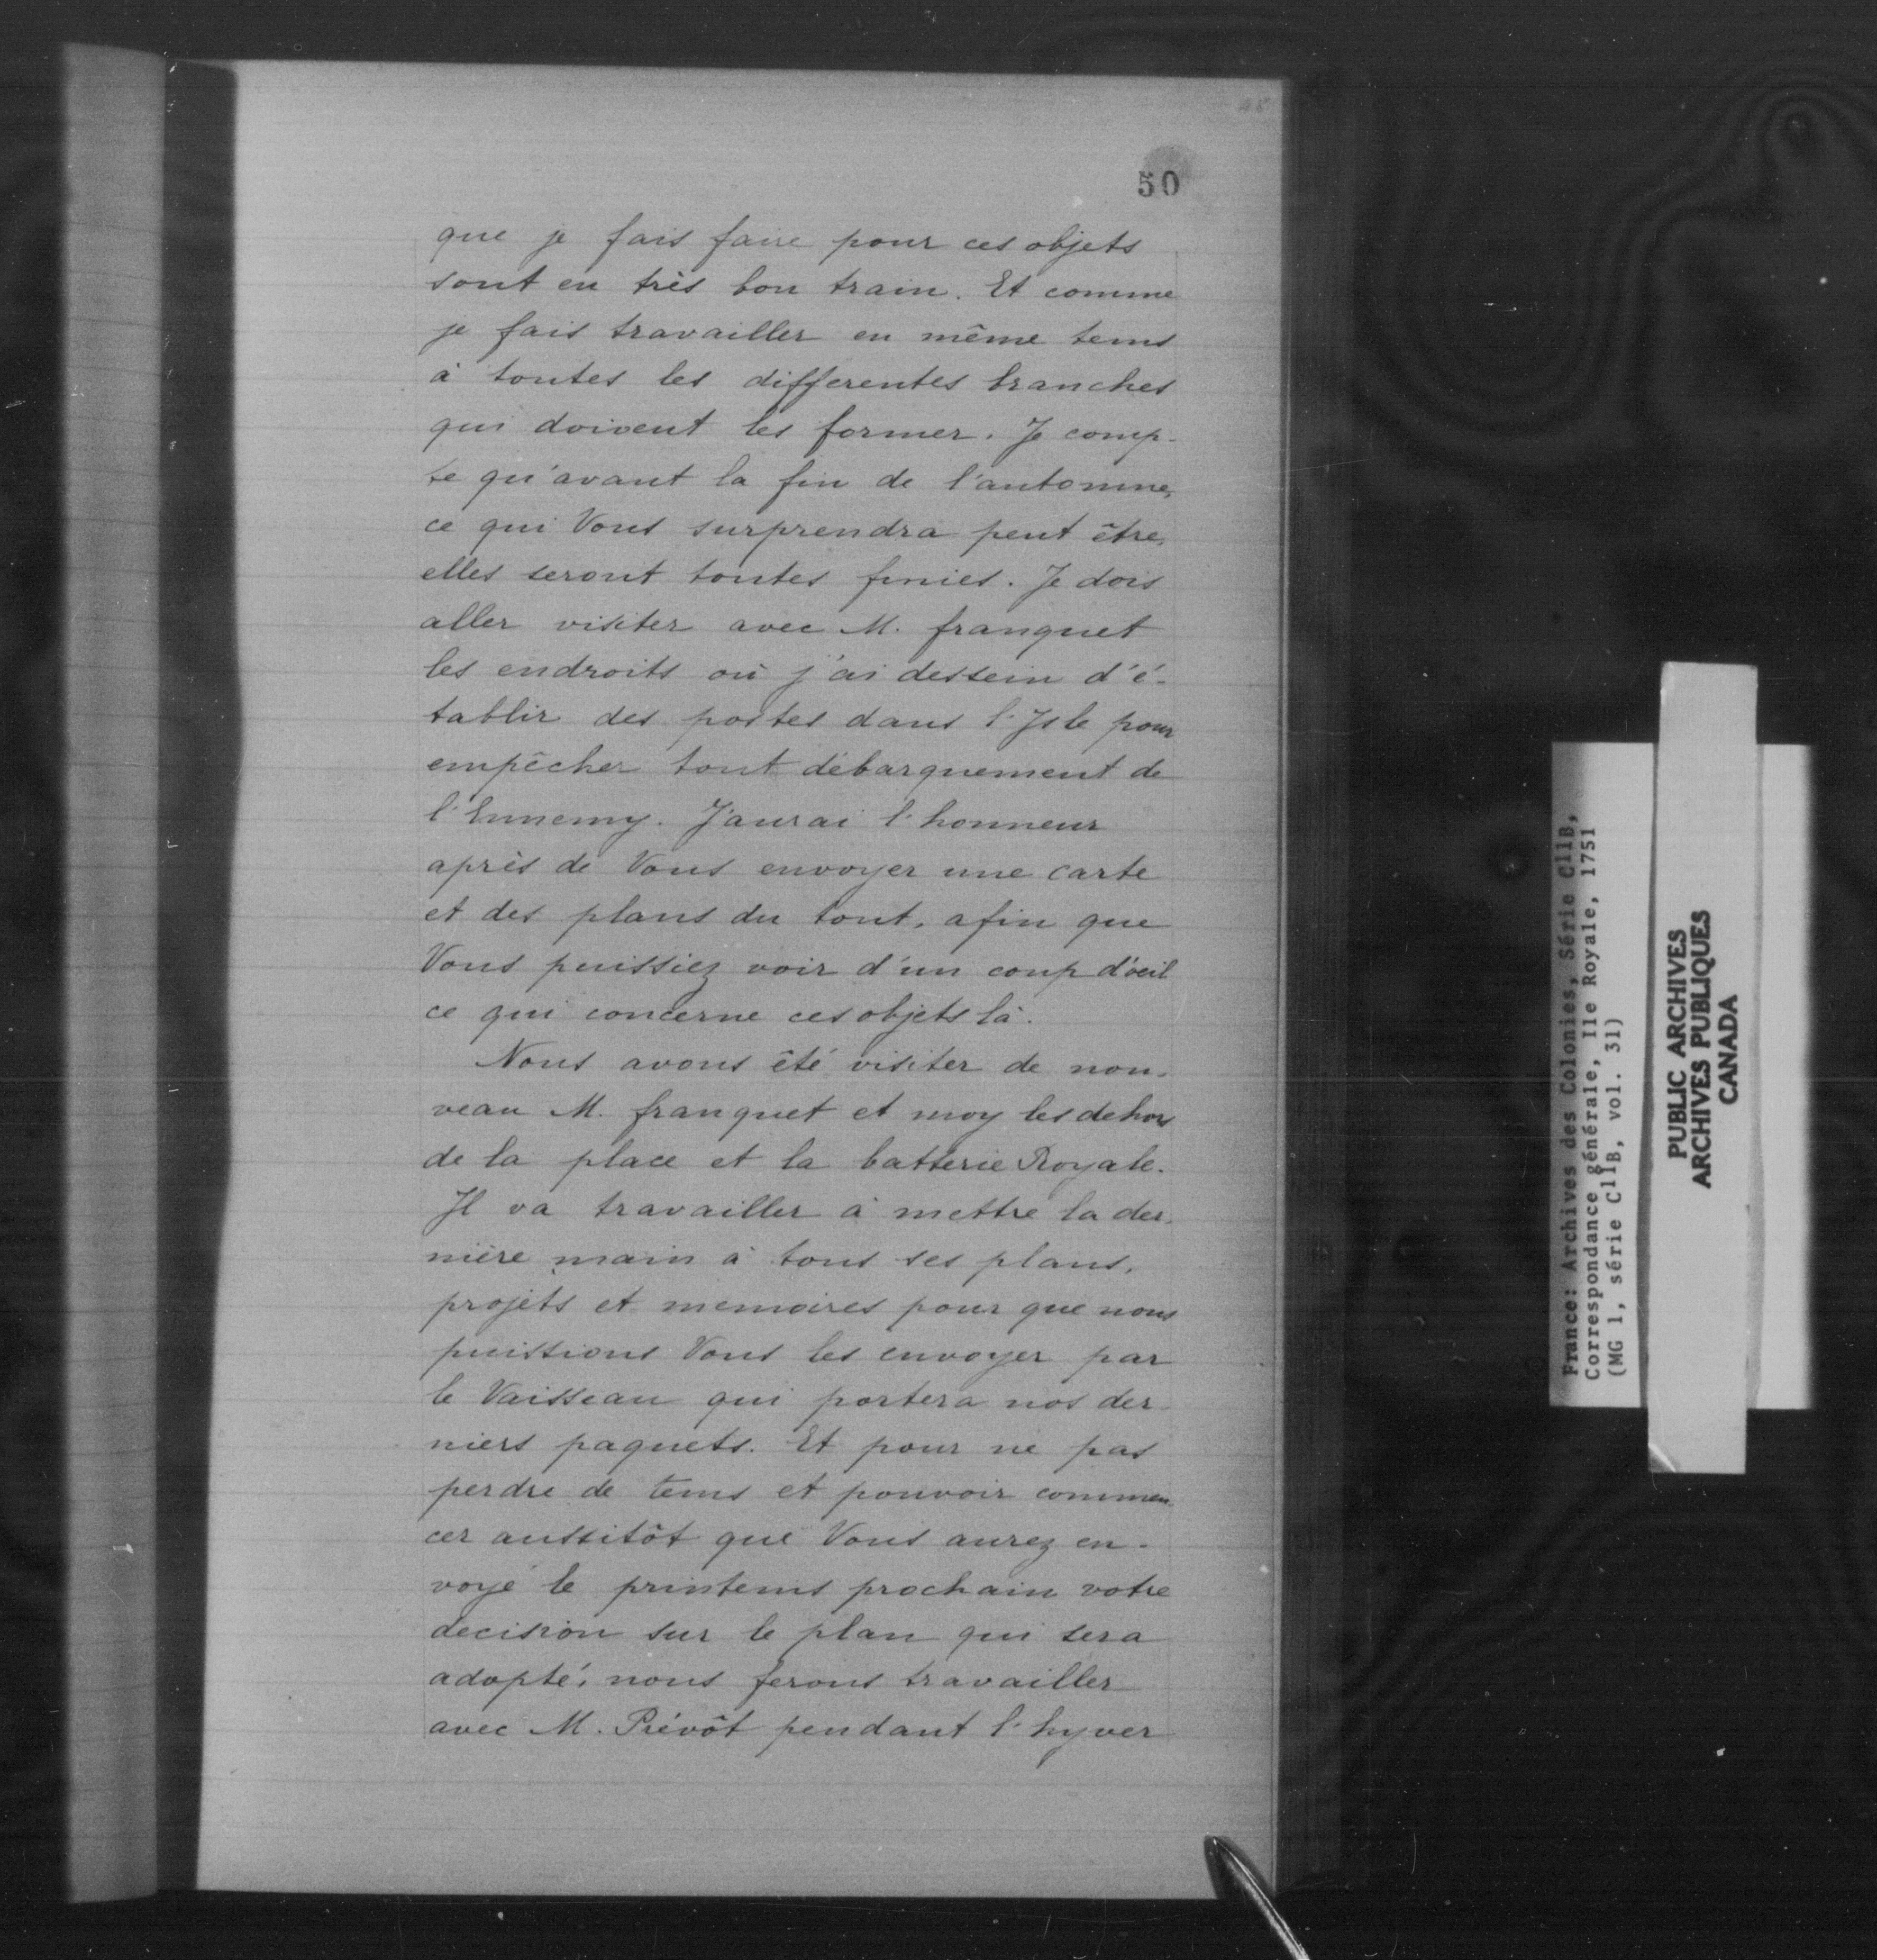 48
50
que je fais faire pour ces objets
sont en très bon train. Et comme
je fais travailler en même tems
à toutes les differentes branches
qui doivent les former. Je comp-
te qu'avant la fin de l'automne,
ce qui Vous surprendra peut être,
elles seront toutes finies. Je dois
aller visiter avec M. franquet
les endroits où j'ai dessein d'é-
tablir des postes dans l'Isle pour
empêcher tout débarquement de
l'Ennemy. J'aurai l'honneur
après de Vous envoyer une carte
et des plans du tout, afin que
Vous puissiez voir d'un coup d'oeil
ce qui concerne ces objets là.
Nous avons été visiter de nou-
veau M. franquet et moy les dehors
de la place et la batterie Royale.
Il va travailler à mettre la der-
nière main à tous ses plans,
projets et memoires pour que nous
puissions Vous les envoyer par
le Vaisseau qui portera nos der-
niers paquets. Et pour ne pas
perdre de tems et pouvoir commen-
cer aussitôt que Vous aurez en-
voyé le printems prochain votre
decision sur le plan qui sera
adopté, nous ferons travailler
avec M. Prévôt pendant l'hyver
France: Archives des Colonies, Série C11B,
Correspondance générale, Ile Royale, 1751
(MG 1, série C11B, vol. 31)
PUBLIC ARCHIVES
ARCHIVES PUBLIQUES
CANADA